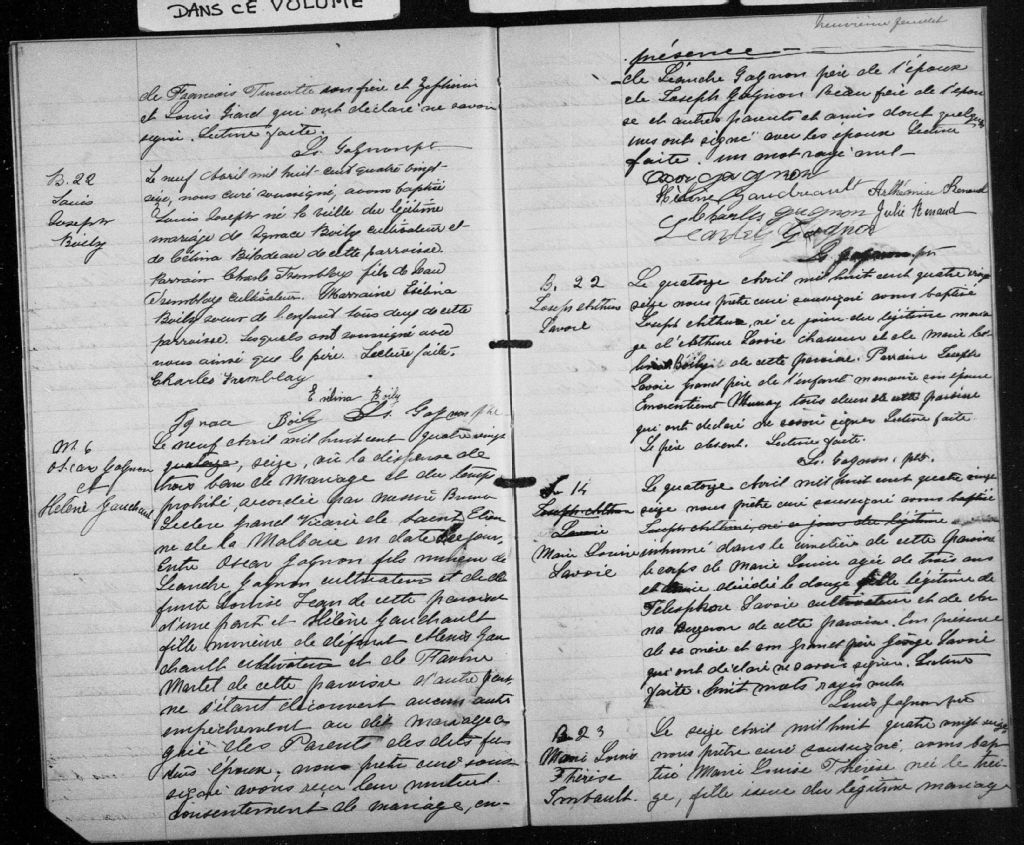 DANS CE VOLUME
de Francois Turcotte son frère et Zephirin
et Louis Girard qui ont déclaré ne savoir
signer. Lecture faite.
Ls. Gagnon ptr
B. 22
Louis
Joseph
Boily
Le neuf Avril mil huit-cent quatre vingt
seize, nous curé soussigné, avons baptisé
Louis Joseph né la veille du légitime
mariage de Ignace Boily cultivateur et
de Célina Bilodeau de cette parroisse.
Parrain Charles Tremblay fils de
Tremblay cultivateur. Marraine Exélina
Boily soeur de l'enfant tous deux de cette
parroisse. Lesquels ont soussigné avec
nous ainsi que le père. Lecture faite.
Charles Tremblay
Exélina Boily
Ignace Boily Ls. Gagnon ptre
M. 6
Oscar Gagnon
et
Hélène Gauchault
Le neuf Avril mil huit cent quatre vingt
quatorze, seize, vu la dispense de
trois ban de mariage et du temps
prohibé accordée par messire Bruno
Leclerc grand Vicaire de Saint Etien
ne de la Malbaie en date de ce jour,
Entre Oscar Gagnon fils mineur de
Léandre Gagnon cultivateur et de dé
funte Louise Jean de cette paroisse
d'une part et Hélène Gauchault
fille mineure de défunt Alexis Gau
chault cultivateur et de Flavine
Martel de cette paroisse d'autre part
ne s'étant découvert aucun autre
empêchement au dit mariage a
gréé des Parents des dits fu
turs époux, nous prêtre curé sous
signé avons reçu leur mutuel
consentement de mariage, en-
neuvième feuillet
présence -
de Léandre Gagnon père de l'époux
de Joseph Gagnon beau frère de l'épou
se et autres parents et amis dont quelques
uns ont signé avec les époux Lecture
faite. un mot rayé nul -
Oscar Gagnon
Hélène Gaudreault Arthémise Renaud
Charles Gagnon Julie Renaud
Gagnon
Ls. Gagnon ptr
B. 22
Joseph Arthur
Savoie
Le quatorze Avril mil huit cent quatre vingt
seize nous prêtre curé soussigné avons baptisé
Joseph Arthur, né ce jour du légitime maria
ge d'Arthur Savoie chasseur et de Marie
Boily de cette paroisse. Parrain Joseph
Savoie grand père de l'enfant marraine son épouse
Emerentienne Murray tous deux de cette paroisse
qui ont déclaré ne savoir signer Lecture faite.
Le père absent. Lecture faite.
Ls. Gagnon, ptr.
S. 14
Joseph Arthur
Savoie
Marie Louise
Savoie
Le quatorze Avril mil huit cent quatre vingt
seize nous prêtre curé soussigné avons baptisé
Joseph Arthur, né ce jour du légitime
inhumé dans le cimetière de cette paroisse
le corps de Marie Louise agée de trois ans
et demie décédée le douze fille légitime de
Télesphore Savoie cultivateur et de An
na Bergeron de cette paroisse. En présence
de sa mère et son grand père George Savoie
qui ont déclaré ne savoir signer. Lecture
faite. huit mots rayés nuls
Louis Gagnon ptr
B. 23
Marie Louise
Thérèse
Imbault.
Le seize Avril mil huit quatre vingt seize
nous prêtre curé soussigné, avons bap
tisé Marie Louise Thérèse née le trei
ze, fille issue du légitime mariage